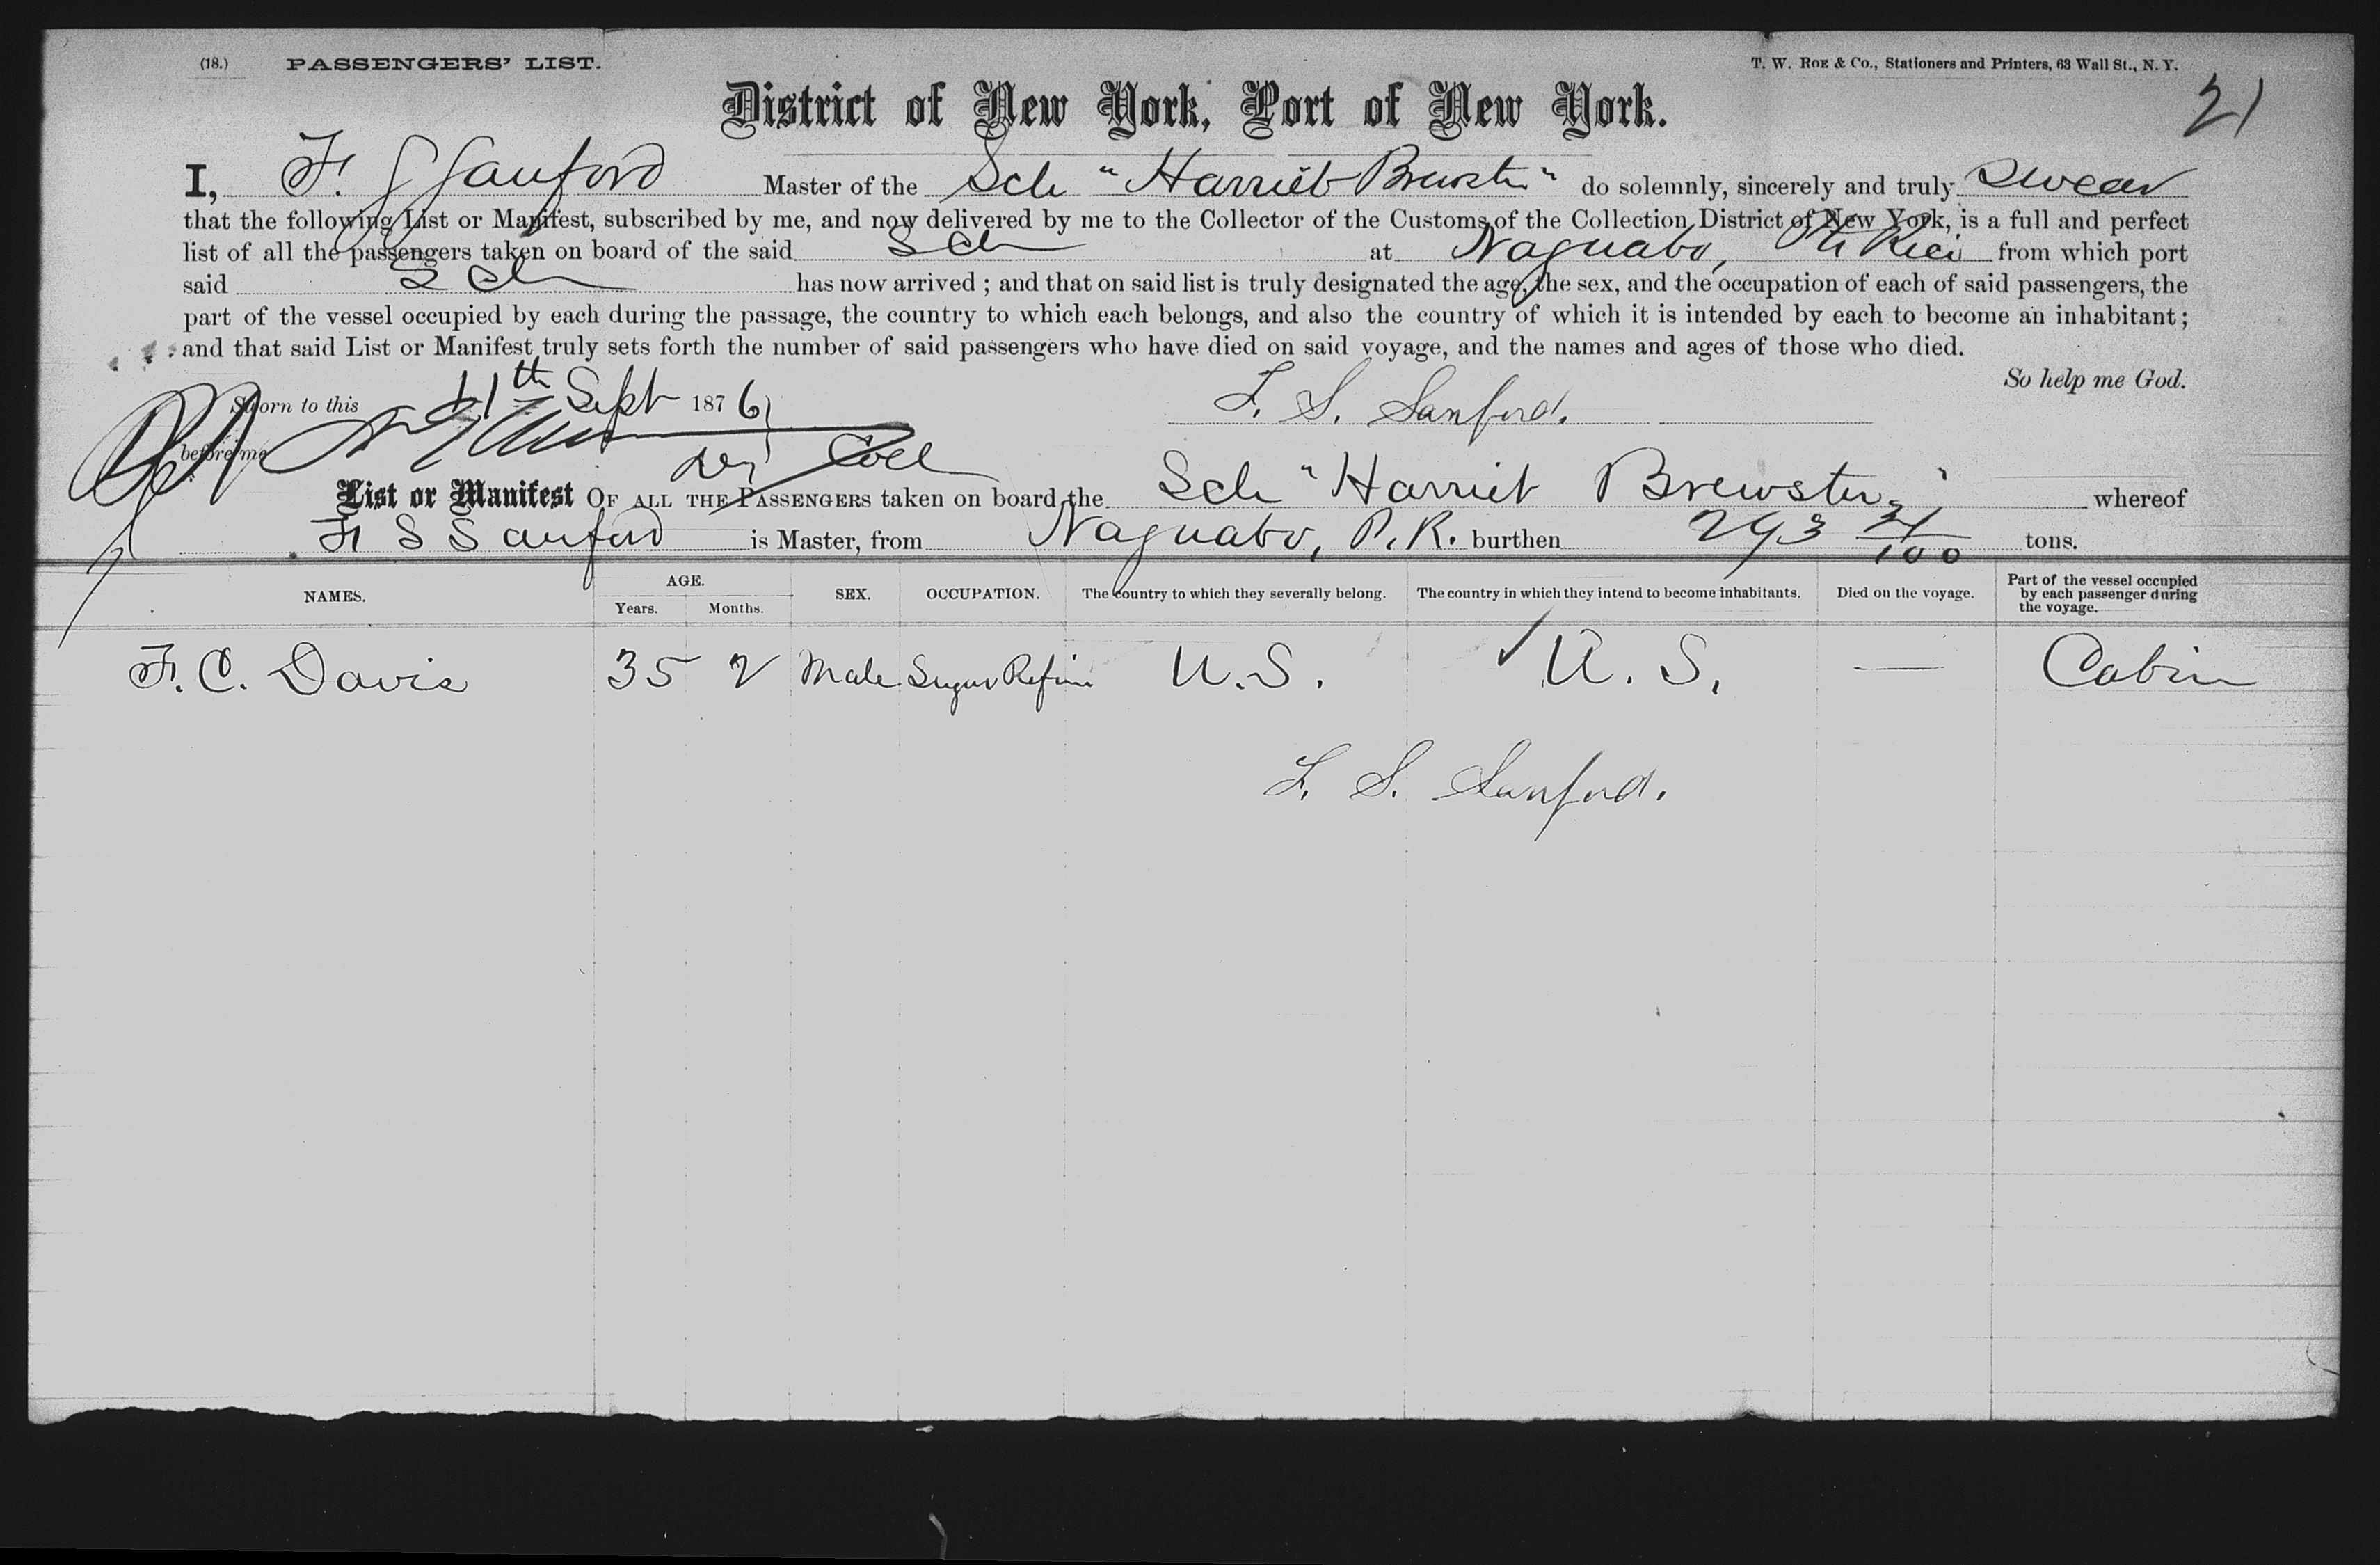 (18.) PASSENGERS' LIST. T. W. ROE & Co., Stationers and Printers, 63 Wall St., N. Y.
21
District of New York, Port of New York.
I, F. S Sanford Master of the Sch "Harriet Brewster" do solemnly, sincerely and truly swear
that the following List or Manifest, subscribed by me, and now delivered by me to the Collector of the Customs of the Collection District of New York, is a full and perfect
list of all the passengers taken on board of the said Sch at Naguabo, from which port
said Sch has now arrived ; and that on said list is truly designated the age, the sex, and the occupation of each of said passengers, the
part of the vessel occupied by each during the passage, the country to which each belongs, and also the country of which it is intended by each to become an inhabitant;
and that said List or Manifest truly sets forth the number of said passengers who have died on said voyage, and the names and ages of those who died.
So help me God.
Sworn to this 11th Sept 1876 F. S. Sanford.
before me
Dy Coll
List or Manifest OF ALL THE PASSENGERS taken on board the Sch "Harriet Brewster" whereof
F S Sanford is Master, from Naguabo, P. R. burthen 293 /100 tons.
NAMES. AGE. Years. Months. SEX. OCCUPATION. The country to which they severally belong. The country in which they intend to become inhabitants. Died on the voyage. Part of the vessel occupied by each passenger during the voyage.
F. C. Davis 35 2 Male Sugar Refiner U.S. ✓ U.S. — Cabin
F. S. Sanford.